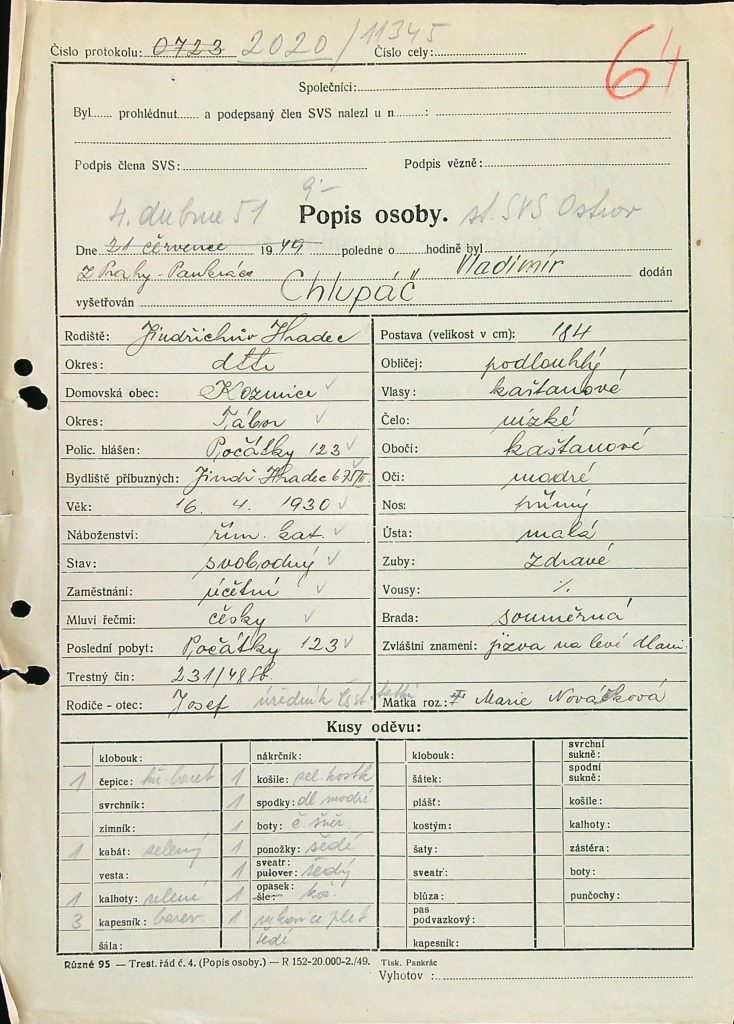 Číslo protokolu: 0723 2020/11345 Číslo cely:
64
Společníci:
Byl...... prohlédnut...... a podepsaný člen SVS nalezl u n........:
Podpis člena SVS: Podpis vězně:
9.-
4. dubna 51 Popis osoby. st. SVS Ostrov
Dne 21 července 1949 poledne o hodině byl Vladimír
z Prahy-Pankráce Chlupáč dodán
vyšetřován
Rodiště: Jindřichův Hradec
Okres: dtto
Domovská obec: Kozmice
Okres: Tábor
Polic. hlášen: Počátky 123
Bydliště příbuzných: Jindř. Hradec
Věk: 16. 4. 1930
Náboženství: řím. kat.
Stav: svobodný
Zaměstnání: účetní
Mluví řečmi: česky
Poslední pobyt: Počátky 123
Trestný čin: 231/48 Sb.
Rodiče - otec: Josef úředník
Postava (velikost v cm): 184
Obličej: podlouhlý
Vlasy: kaštanové
Čelo: nízké
Obočí: kaštanové
Oči: modré
Nos: přímý
Ústa: malá
Zuby: zdravé
Vousy: %
Brada: souměrná
Zvláštní znamení: jizva na levé dlani
Matka roz.: Marie Nováčková
Kusy oděvu:
klobouk:
1 čepice: baret
svrchník:
zimník:
1 kabát: zelený
vesta:
1 kalhoty: zelené
3 kapesník: barev.
šála:
nákrčník:
1 košile: kostk
1 spodky: dl modré
1 boty: č. šněr
1 ponožky: šedé
1 sveatr: pulover: šedý
1 opasek: šle: kož.
1 rukavice plet
šedé
klobouk:
šátek:
plášť:
kostým:
šaty:
sveatr:
blůza:
pas
podvazkový:
kapesník:
svrchní
sukně:
spodní
sukně:
košile:
kalhoty:
zástěra:
boty:
punčochy:
Různé 95 — Trest. řád č. 4. (Popis osoby.) — R 152-20.000-2./49. Tisk. Pankrác
Vyhotov :